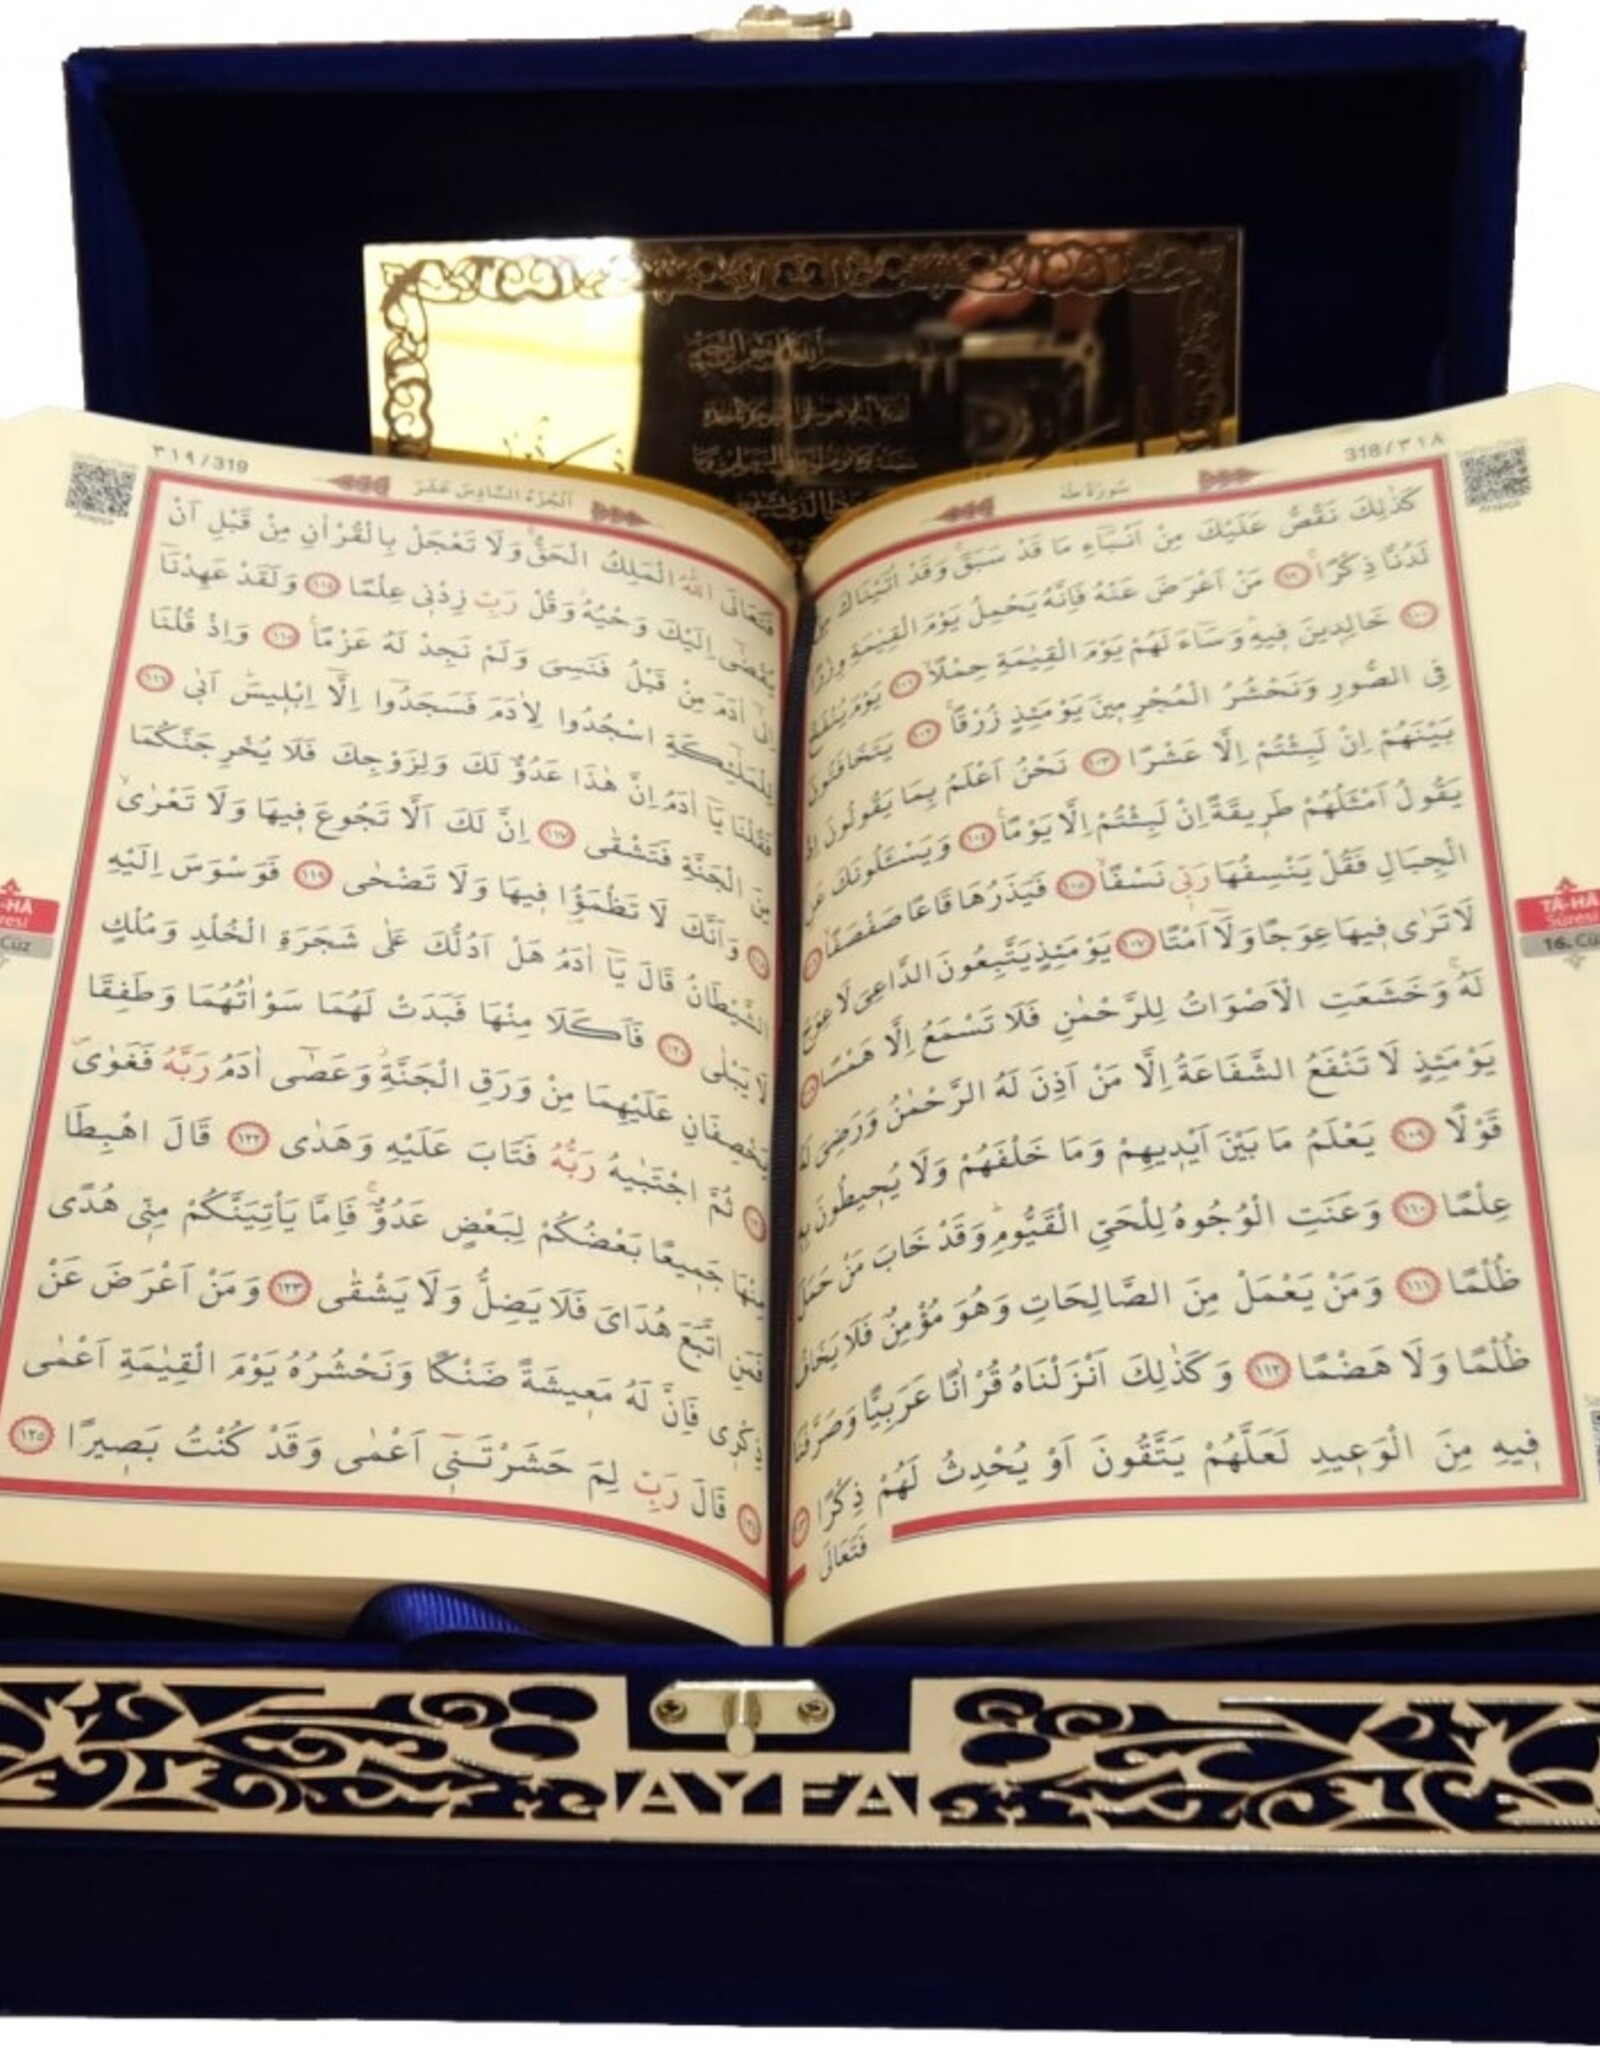 318/٣١٨
سُورَةُ طٰهٰ
كَذٰلِكَ نَقُصُّ عَلَيْكَ مِنْ اَنْبَٓاءِ مَا قَدْ سَبَقَۚ وَقَدْ اٰتَيْنَاكَ مِنْ
لَدُنَّا ذِكْرًاۚ ٩٩ مَنْ اَعْرَضَ عَنْهُ فَاِنَّهُ يَحْمِلُ يَوْمَ الْقِيٰمَةِ وِزْرًاۙ
١٠٠ خَالِد۪ينَ ف۪يهِۜ وَسَٓاءَ لَهُمْ يَوْمَ الْقِيٰمَةِ حِمْلًاۙ ١٠١ يَوْمَ يُنْفَخُ
فِي الصُّورِ وَنَحْشُرُ الْمُجْرِم۪ينَ يَوْمَئِذٍ زُرْقًاۚ ١٠٢ يَتَخَافَتُونَ
بَيْنَهُمْ اِنْ لَبِثْتُمْ اِلَّا عَشْرًا ١٠٣ نَحْنُ اَعْلَمُ بِمَا يَقُولُونَ اِذْ
يَقُولُ اَمْثَلُهُمْ طَر۪يقَةً اِنْ لَبِثْتُمْ اِلَّا يَوْمًا۟ ١٠٤ وَيَسْـَٔلُونَكَ عَنِ
الْجِبَالِ فَقُلْ يَنْسِفُهَا رَبّ۪ي نَسْفًاۙ ١٠٥ فَيَذَرُهَا قَاعًا صَفْصَفًاۙ
لَا تَرٰى ف۪يهَا عِوَجًا وَلَٓا اَمْتًا ١٠٧ يَوْمَئِذٍ يَتَّبِعُونَ الدَّاعِيَ لَا عِوَجَ
لَهُۚ وَخَشَعَتِ الْاَصْوَاتُ لِلرَّحْمٰنِ فَلَا تَسْمَعُ اِلَّا هَمْسًا
يَوْمَئِذٍ لَا تَنْفَعُ الشَّفَاعَةُ اِلَّا مَنْ اَذِنَ لَهُ الرَّحْمٰنُ وَرَضِيَ لَهُ
قَوْلًا ١٠٩ يَعْلَمُ مَا بَيْنَ اَيْد۪يهِمْ وَمَا خَلْفَهُمْ وَلَا يُح۪يطُونَ بِه۪
عِلْمًا ١١٠ وَعَنَتِ الْوُجُوهُ لِلْحَيِّ الْقَيُّومِۜ وَقَدْ خَابَ مَنْ حَمَلَ
ظُلْمًا ١١١ وَمَنْ يَعْمَلْ مِنَ الصَّالِحَاتِ وَهُوَ مُؤْمِنٌ فَلَا يَخَافُ
ظُلْمًا وَلَا هَضْمًا ١١٢ وَكَذٰلِكَ اَنْزَلْنَاهُ قُرْاٰنًا عَرَبِيًّا وَصَرَّفْنَا
ف۪يهِ مِنَ الْوَع۪يدِ لَعَلَّهُمْ يَتَّقُونَ اَوْ يُحْدِثُ لَهُمْ ذِكْرًا
فَتَعَالَى
TÂ-HÂ
Sûresi
16. Cüz
٣١٩/319
اَلْجُزْءُ السَّادِسُ عَشَرَ
فَتَعَالَى اللّٰهُ الْمَلِكُ الْحَقُّۚ وَلَا تَعْجَلْ بِالْقُرْاٰنِ مِنْ قَبْلِ اَنْ
يُقْضٰٓى اِلَيْكَ وَحْيُهُۘ وَقُلْ رَبِّ زِدْن۪ي عِلْمًا ١١٤ وَلَقَدْ عَهِدْنَٓا
اِلٰٓى اٰدَمَ مِنْ قَبْلُ فَنَسِيَ وَلَمْ نَجِدْ لَهُ عَزْمًا۟ ١١٥ وَاِذْ قُلْنَا
لِلْمَلٰٓئِكَةِ اسْجُدُوا لِاٰدَمَ فَسَجَدُٓوا اِلَّٓا اِبْل۪يسَۜ اَبٰى ١١٦
فَقُلْنَا يَٓا اٰدَمُ اِنَّ هٰذَا عَدُوٌّ لَكَ وَلِزَوْجِكَ فَلَا يُخْرِجَنَّكُمَا
مِنَ الْجَنَّةِ فَتَشْقٰى ١١٧ اِنَّ لَكَ اَلَّا تَجُوعَ ف۪يهَا وَلَا تَعْرٰىۙ
وَاَنَّكَ لَا تَظْمَؤُ۬ا ف۪يهَا وَلَا تَضْحٰى ١١٩ فَوَسْوَسَ اِلَيْهِ
الشَّيْطَانُ قَالَ يَٓا اٰدَمُ هَلْ اَدُلُّكَ عَلٰى شَجَرَةِ الْخُلْدِ وَمُلْكٍ
لَا يَبْلٰى ١٢٠ فَاَكَلَا مِنْهَا فَبَدَتْ لَهُمَا سَوْاٰتُهُمَا وَطَفِقَا
يَخْصِفَانِ عَلَيْهِمَا مِنْ وَرَقِ الْجَنَّةِۘ وَعَصٰٓى اٰدَمُ رَبَّهُ فَغَوٰىۖ
ثُمَّ اجْتَبٰيهُ رَبُّهُ فَتَابَ عَلَيْهِ وَهَدٰى ١٢٢ قَالَ اهْبِطَا
مِنْهَا جَم۪يعًا بَعْضُكُمْ لِبَعْضٍ عَدُوٌّۚ فَاِمَّا يَأْتِيَنَّكُمْ مِنّ۪ي هُدًى
فَمَنِ اتَّبَعَ هُدَايَ فَلَا يَضِلُّ وَلَا يَشْقٰى ١٢٣ وَمَنْ اَعْرَضَ عَنْ
ذِكْر۪ي فَاِنَّ لَهُ مَع۪يشَةً ضَنْكًا وَنَحْشُرُهُ يَوْمَ الْقِيٰمَةِ اَعْمٰى
قَالَ رَبِّ لِمَ حَشَرْتَن۪ٓي اَعْمٰى وَقَدْ كُنْتُ بَص۪يرًا ١٢٥
AYFA